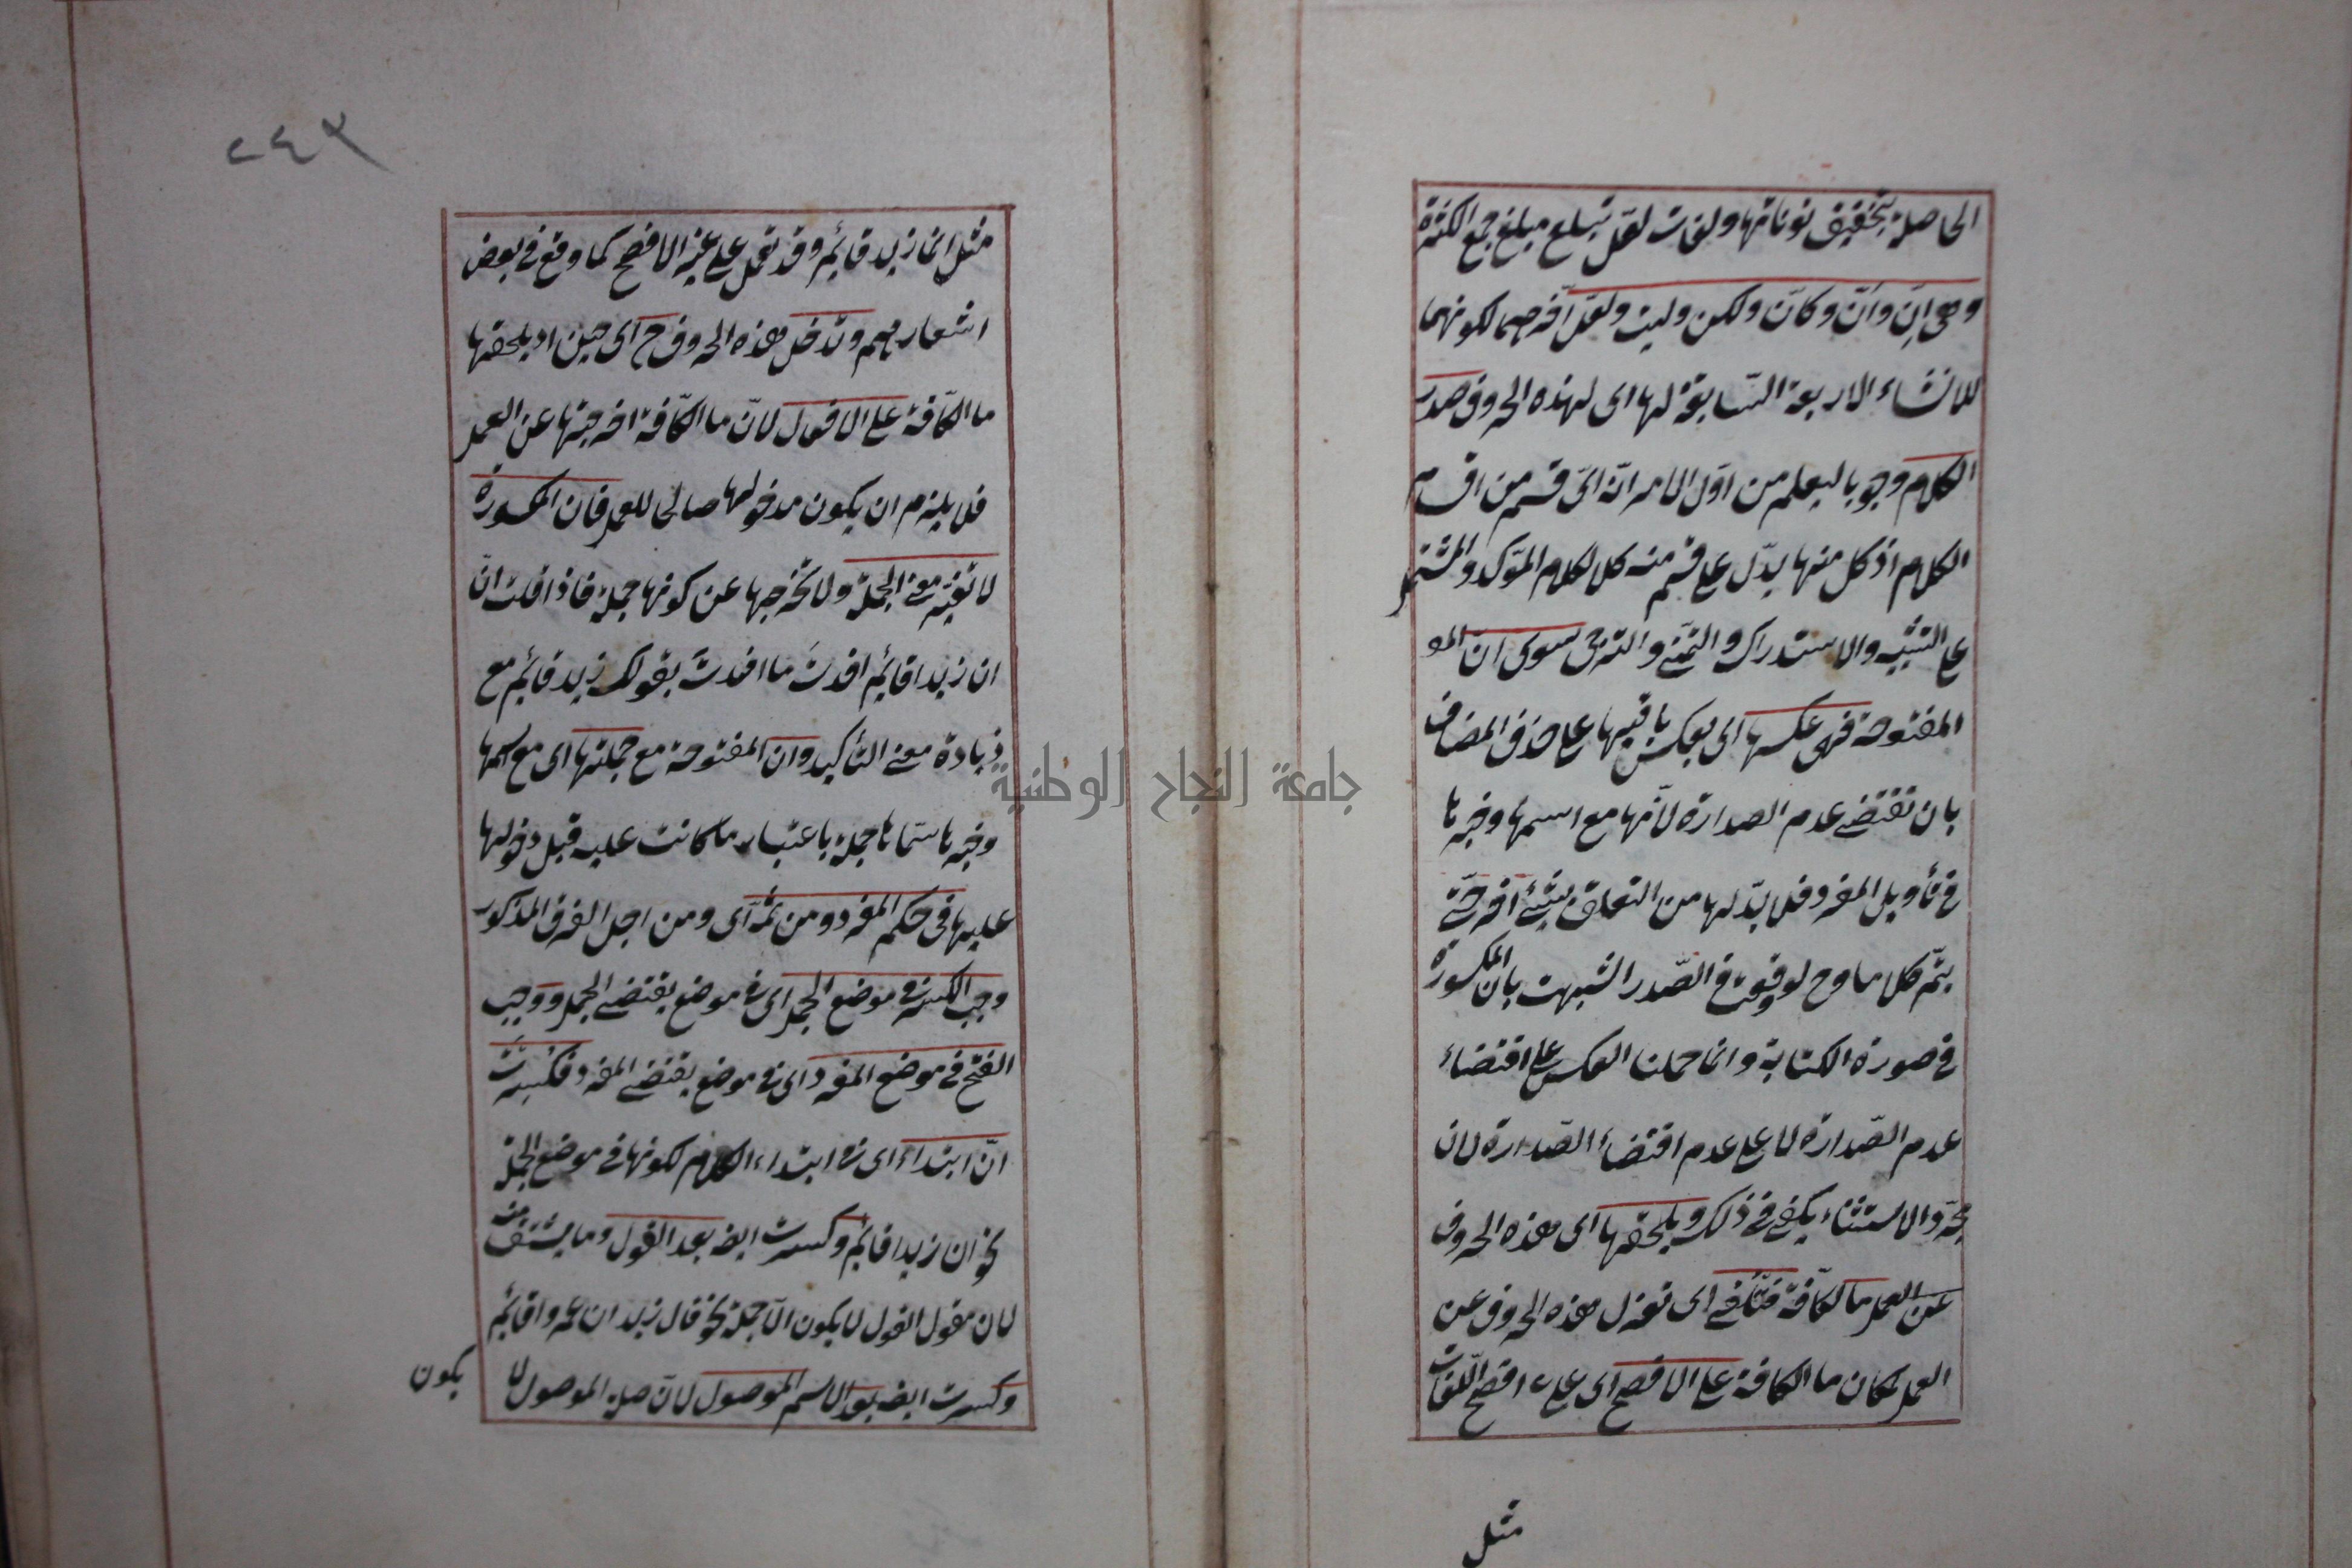 الحاصلة بتخفيف نوناتها ولغات لعل تبلغ مبلغ جمع الكثرة
وهى انّ وأنّ وكأنّ ولكن وليت ولعل آخرهما لكونهما
للانشاء الاربعة السّابقة لها اى لهذه الحروف صدر
الكلام وجوبا ليعلم من اوّل الامر انّه اىّ قسم من اقسام
الكلام اذ كل منها يدّل على قسم منه كالكلام المؤكد والمشتمل
على التشبيه والاستدراك والتمنّى والترجى سوى انّ المفـ
المفتوحة فهى عكسها اى بعكس باقيها على حذف المضاف
بان تقتضى عدم الصدارة لأنها مع اسمها وخبرها
فى تأويل المفرد فلا بدّ لها من التعلق بشئ آخر حتّى
يتمّ كلاما وح لو وقعت فى الصّدر اشتبهت بان المكسورة
فى صورة الكتابة وانما حملنا العكس على اقتضاء
عدم الصّدارة لا على عدم اقتضاء الصّدارة لان
مجرّد الاستثناء يكفى فى ذلك ويلحقها اى هذه الحروف
عن العمل ما الكآفّة فتُلْغى اى تعزل هذه الحروف عن
العمل لمكان ما الكافة على الافصح اى على افصح اللّغات
مثل
٢٤٢
مثل انما زيد قائم وقد تعمل على غير الافصح كما وقع فى بعض
اشعارهم وتدخل هذه الحروف ح اى حين اذ يلحقها
ما الكّافة على الافعال لانّ ما الكّافة اخرجتها عن العمل
فلا يلزم ان يكون مدخولها صالحا للعمل فان المكسورة
لا تغيّر معنى الجملة ولا تخرجها عن كونها جملة فاذا قلت انّ
ان زيدا قائم افدتَ ما افدتَ بقولك زيد قائم مع
زيادة معنى التأكيد وان المفتوحة مع جملتها اى مع اسمها
وخبرها سمّاها جملة باعتبار ما كانت عليه قبل دخولها
عليها فى حكم المفرد ومن ثمّه اى ومن اجل الفرق المذكور
وجب الكسر فى موضع الجمل اى فى موضع يقتضى الجمل ووجب
الفتح فى موضع المفرد اى فى موضع يقتضى المفرد فكُسِرَتْ
انّ ابتداء اى فى ابتداء الكلام لكونها فى موضع الجملة
نحو ان زيدا قائم وكسرت ايضا بعد القول وما يشتق منه
لان مقول القول لا يكون الّا جملة نحو قال زيد ان عمروا قائم
وكسرت ايضا بعد الاسم الموصول لانّ صلة الموصول لا
يكون
جامعة النجاح الوطنية